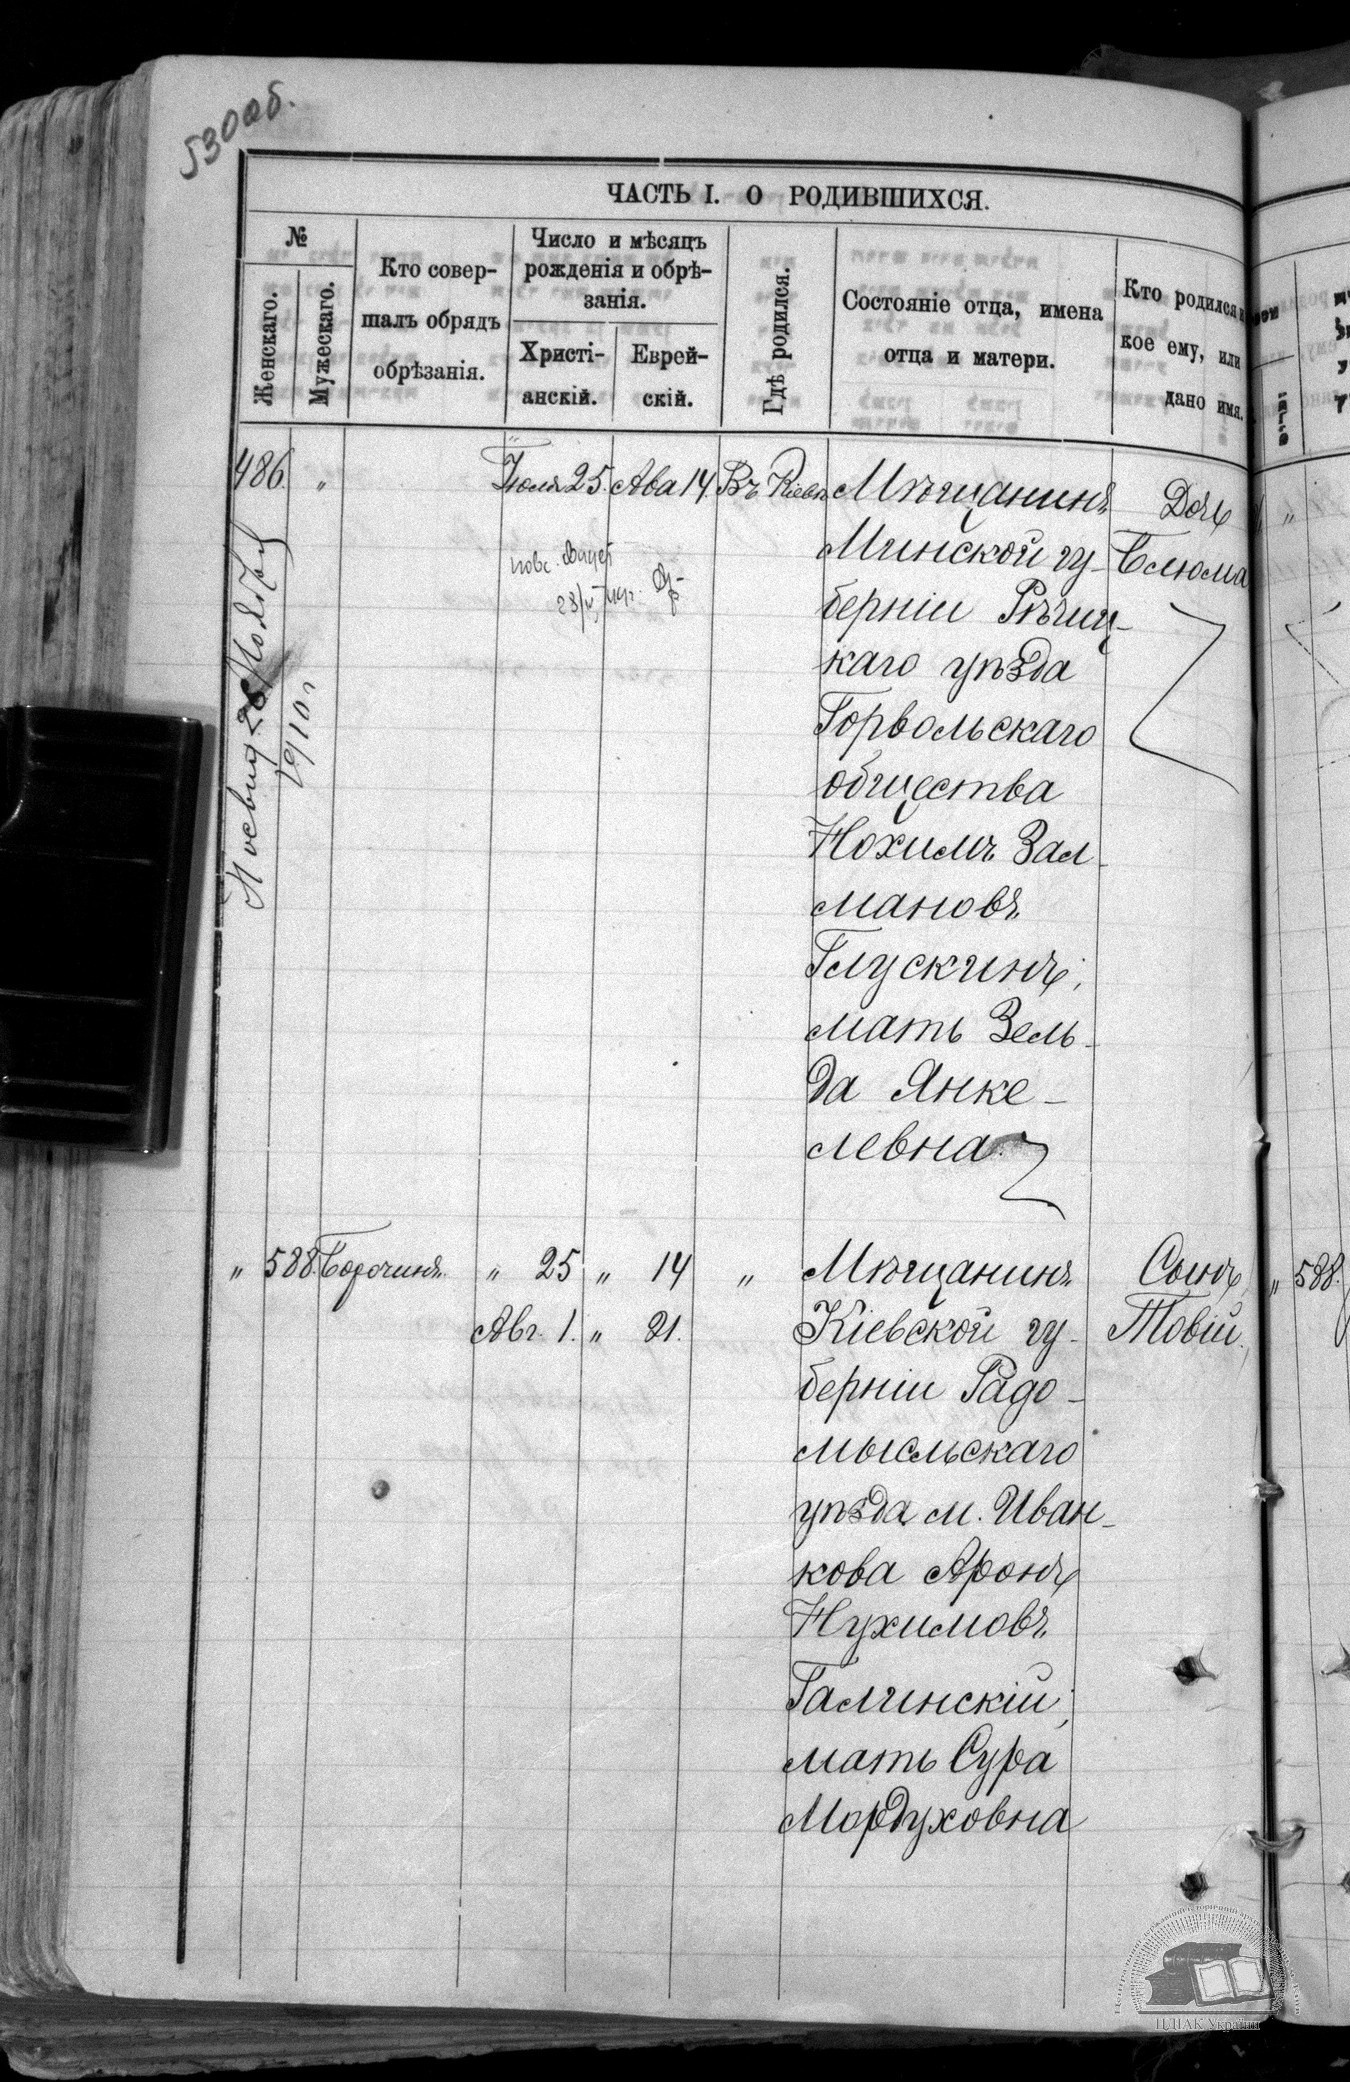 530 об.
ЧАСТЬ I. О РОДИВШИХСЯ.
№
Женскаго.
Мужескаго.
Кто совер-
шалъ обрядъ
обрѣзанія.
Число и мѣсяцъ
рожденія и обрѣ-
занія.
Христі-
анскій.
Еврей-
скій.
Гдѣ родился.
Состояніе отца, имена
отца и матери.
Кто родился и
кое ему, или
дано имя.
486. " Іюля 25. Ава 14. Въ Кіевѣ
Мѣщанинъ
Минской гу-
берніи Рѣчиц-
каго уѣзда
Горвольскаго
общества
Нохимъ Зал-
мановъ
Глускинъ;
мать Зель-
да Янке-
левна.
Дочь
Блюма
1910 г
" 588. Борочинъ. " 25 " 14 "
Авг. 1. " 21.
Мѣщанинъ
Кіевской гу-
берніи Радо-
мысльскаго
уѣзда м. Иван-
кова Аронъ
Нухимовъ
Галинскій;
мать Сура
Мордуховна
Сынъ
Товій.
" 588.
ЦДІАК України